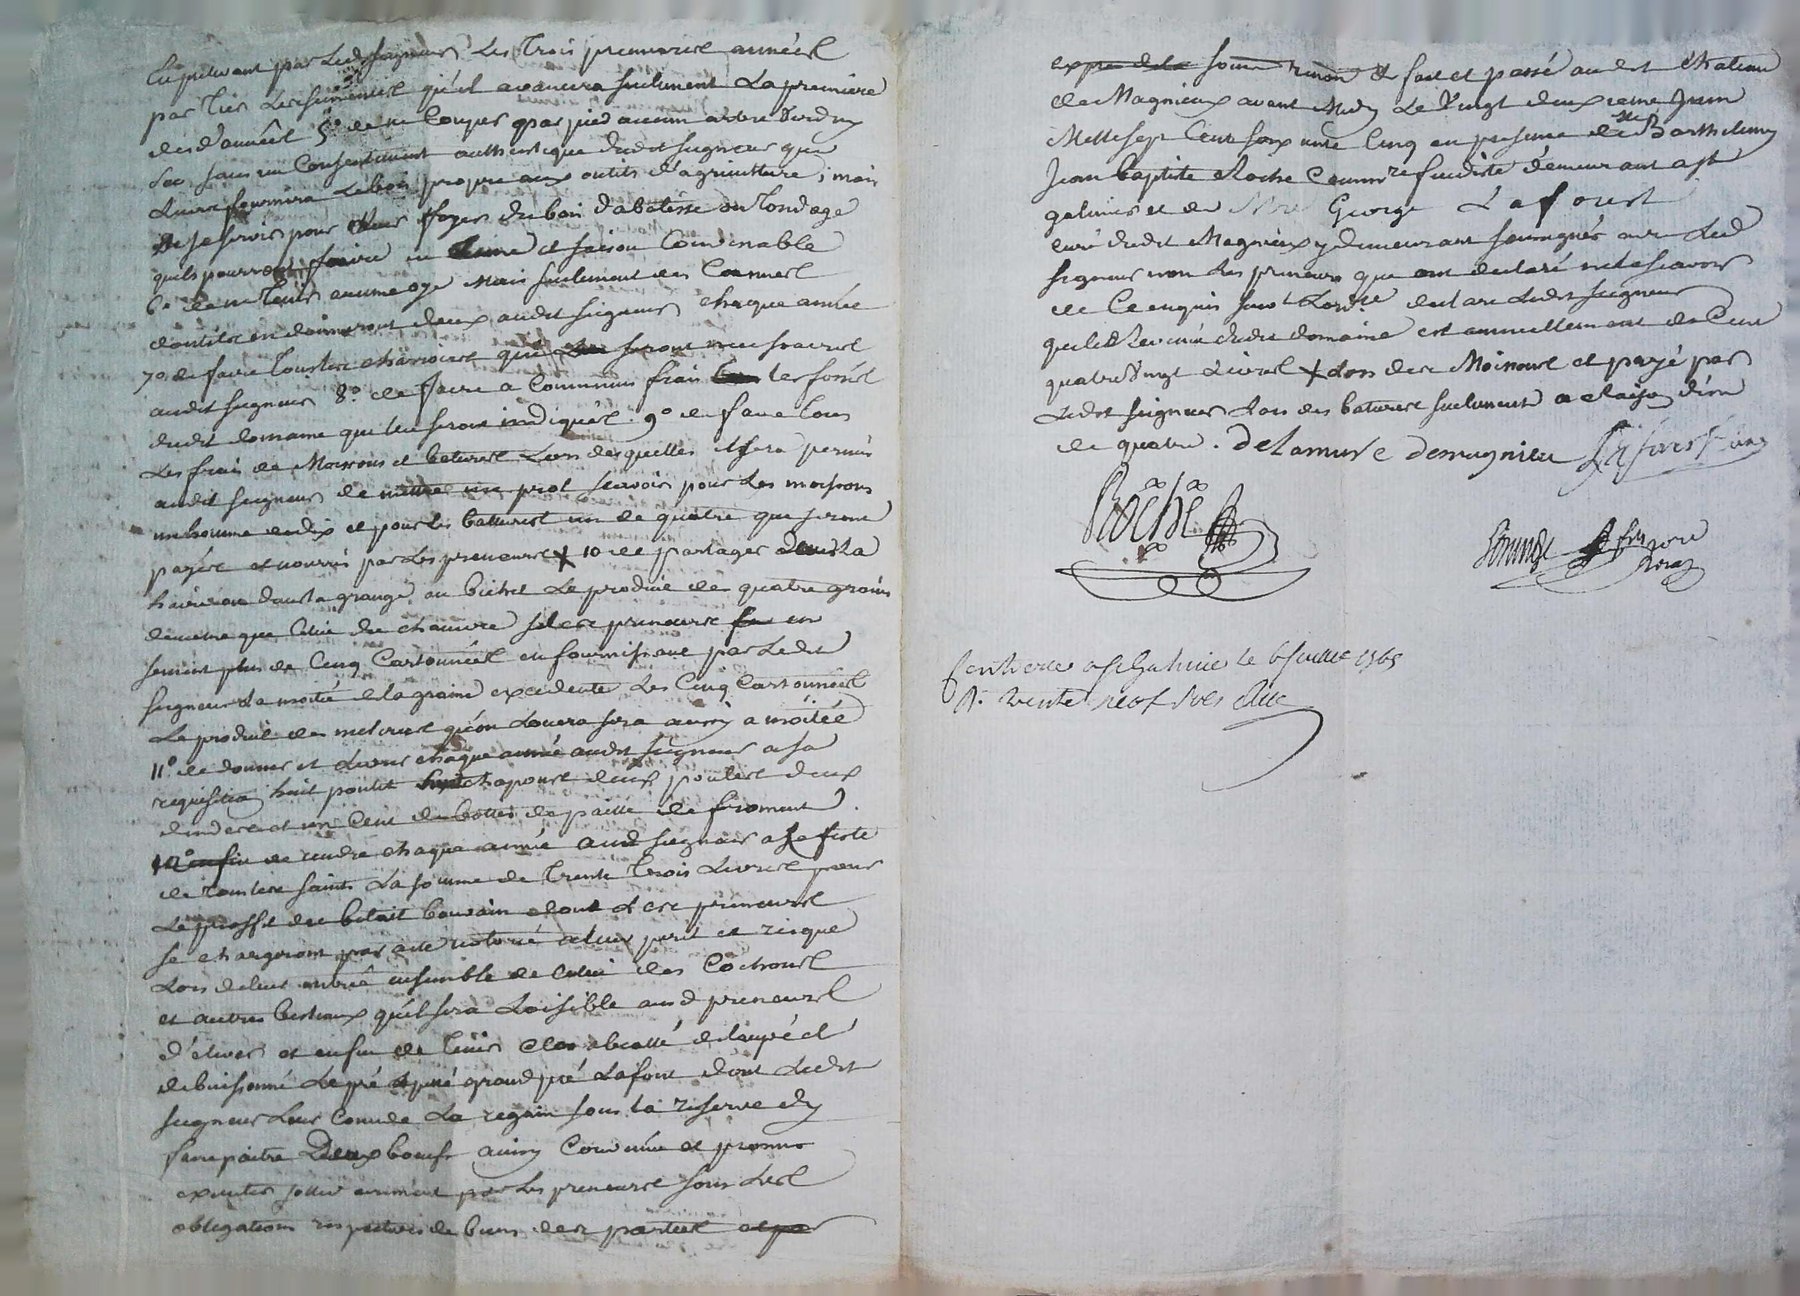 En prelevant par Ledit seigneur Les Trois premieres années
par Tier Les semences qu'il avancera seulement La premiere
desd années 5° de ne Couper par pied aucun arbre verd ny
sec sans un Consentement authentique dudit seigneur que
Leurs fournira Le bois propre aux outils d'agriculture ; mais
de se servir pour leurs foyer du bois d'abatisse ou Tondage
quils pourront faire en tems et saison Convenable
6° de ne Tenir aucune oye Mais seulement des Cannes
donts ils en donneront deux audit seigneur chaque année
7° de faire Tous les charrois qui seront necessaires
audit seigneur 8° de faire a Communs frais les fossés
dudit domaine qui leur seront indiqués 9° de faire Tous
Les frais de Moissons et batures Lors desquelles il sera permis
audit seigneur de mettre un prof scavoir pour Les moissons
un homme dedix et pour les battures un de quatre que seront
payés et nourris par Les preneurs x 10 de partager a
dans la grange au bichet Le produit des quatre grains
de meme que Celui du chanvre si les preneurs en
sement plus de Cinq Cartonnées en fournissant par Ledit
seigneur La moitié de la graine excedente Les Cinq Cartonnées
Le produit des qu'on Louera sera aussy a moitée
11° de donner et Livrer chaque année audit seigneur a sa
requisition huit poulet chapons deux poules deux
dindes et un Cent de bottes de paille de froment
12° enfin de rendre chaque année aud seigneur a la feste
de Tous les saints La somme de Trente Trois Livres pour
Le proffit du betail bouvain dont et les preneurs
se chargeront par acte notorié a leur peril et risque
Lors de leur entrée ensemble de Celui des Cochons
et autres bestiaux qu'il sera Loisible aud preneurs
d'élever et enfin de Tenir Clos
de buissonné Le pré grand pré Lafont dont Ledit
seigneur Leur Conede La regain sous la reserve dy
faire paitre Deux boeufs ainsy Convenu et promis
executer par Les preneurs sous Les
obligations respectives de biens des parties et par
expres de la somme fait et passé au dit chateau
de Magnieux avant Midy Le Vingt deuxieme Juin
Mille sept Cent soixante Cinq en presence de Me Barthelemy
Jean baptiste Roche Commre feudiste demeurant a St
galmier et de George Laforest
curé dudit Magnieux y demeurant soussignés avec Led
seigneur non Les preneurs que ont declaré ne le scavoir
de Ce enquis suivt Lordce declare Ledit seigneur
que le Revenu dudit domaine est annuellement de Cent
quatre Vingt Livres x Lors des Moissons et payé par
Ledit seigneur Lors des batures seulement a raison d'un
de quatre . delamure demagnieu Laforest curé
Roche
Contrerolé a St Galmier le 6 Juillet 1765
R. trente neuf sols